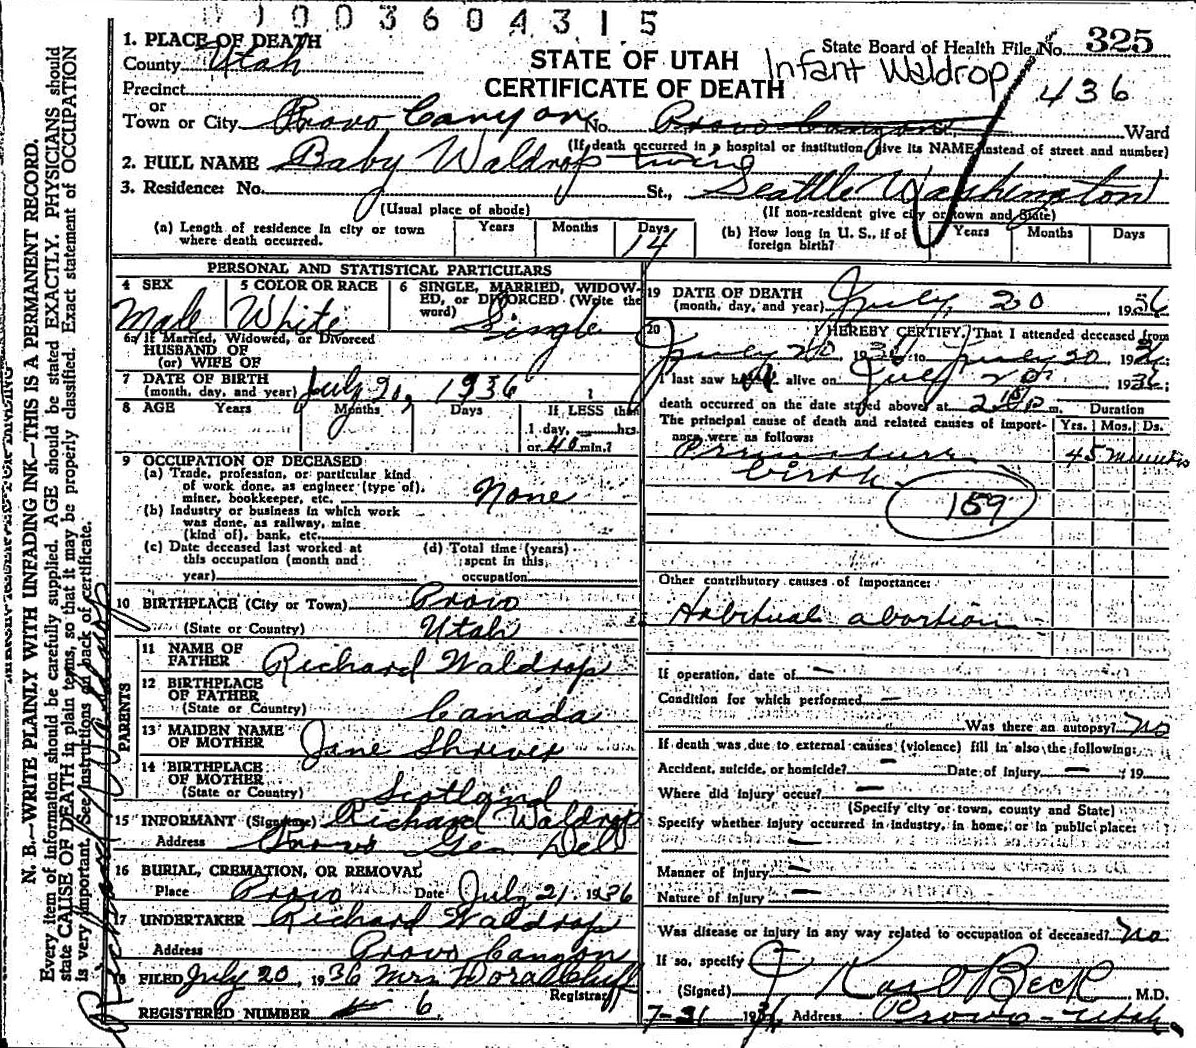 01003604315
1. PLACE OF DEATH
County Utah
STATE OF UTAH
CERTIFICATE OF DEATH
State Board of Health File No. 325
Infant Waldrop
436
Precinct
or
Town or City Provo Canyon No. Provo Canyon Ward
(If death occurred in a hospital or institution, give its NAME instead of street and number)
2. FULL NAME Baby Waldrop twins
3. Residence: No. St., Seattle Washington
(Usual place of abode)
(If non-resident give city or town and State)
(a) Length of residence in city or town where death occurred. Years Months Days 14
(b) How long in U. S., if of foreign birth? Years Months Days
PERSONAL AND STATISTICAL PARTICULARS
4 SEX Male
5 COLOR OR RACE White
6 SINGLE, MARRIED, WIDOWED, or DIVORCED (Write the word) Single
6a If Married, Widowed, or Divorced
HUSBAND OF
(or) WIFE OF
7 DATE OF BIRTH
(month, day, and year) July 20, 1936
8 AGE Years Months Days If LESS than
1 day, hrs.
or 40 min.?
9 OCCUPATION OF DECEASED
(a) Trade, profession, or particular kind
of work done, as engineer (type of),
miner, bookkeeper, etc. None
(b) Industry or business in which work
was done, as railway, mine
(kind of), bank, etc.
(c) Date deceased last worked at
this occupation (month and
year)
(d) Total time (years)
spent in this
occupation
10 BIRTHPLACE (City or Town) Provo
(State or Country) Utah
PARENTS
11 NAME OF
FATHER Richard Waldrop
12 BIRTHPLACE
OF FATHER
(State or Country) Canada
13 MAIDEN NAME
OF MOTHER Jane Shriver
14 BIRTHPLACE
OF MOTHER
(State or Country) Scotland
15 INFORMANT (Signature) Richard Waldrop
Address Provo Gen Del
16 BURIAL, CREMATION, OR REMOVAL
Place Provo Date July 21 1936
17 UNDERTAKER Richard Waldrop
Address Provo Canyon
18 FILED July 20, 1936 Mrs
Registrar
REGISTERED NUMBER 6
19 DATE OF DEATH
(month, day, and year) July 20 1936
20 I HEREBY CERTIFY, That I attended deceased from
July 20, 1936 to July 20 1936
I last saw h alive on July 20 1936;
death occurred on the date stated above at m. Duration
The principal cause of death and related causes of importance were as follows: Yrs. Mos. Ds.
Premature 45 minutes
birth
159
Other contributory causes of importance:
Habitual abortion
If operation, date of —
Condition for which performed —
Was there an autopsy? No
If death was due to external causes (violence) fill in also the following:
Accident, suicide, or homicide? — Date of injury — 19
Where did injury occur? —
(Specify city or town, county and State)
Specify whether injury occurred in industry, in home, or in public place:
—
Manner of injury —
Nature of injury —
Was disease or injury in any way related to occupation of deceased? No
If so, specify
(Signed) J Karl Beck M.D.
7-21 1936 Address Provo - Utah
N. B.—WRITE PLAINLY WITH UNFADING INK—THIS IS A PERMANENT RECORD.
Every item of information should be carefully supplied. AGE should be stated EXACTLY. PHYSICIANS should
state CAUSE OF DEATH in plain terms, so that it may be properly classified. Exact statement of OCCUPATION
is very important. See instructions on back of certificate.
Richard Waldrop